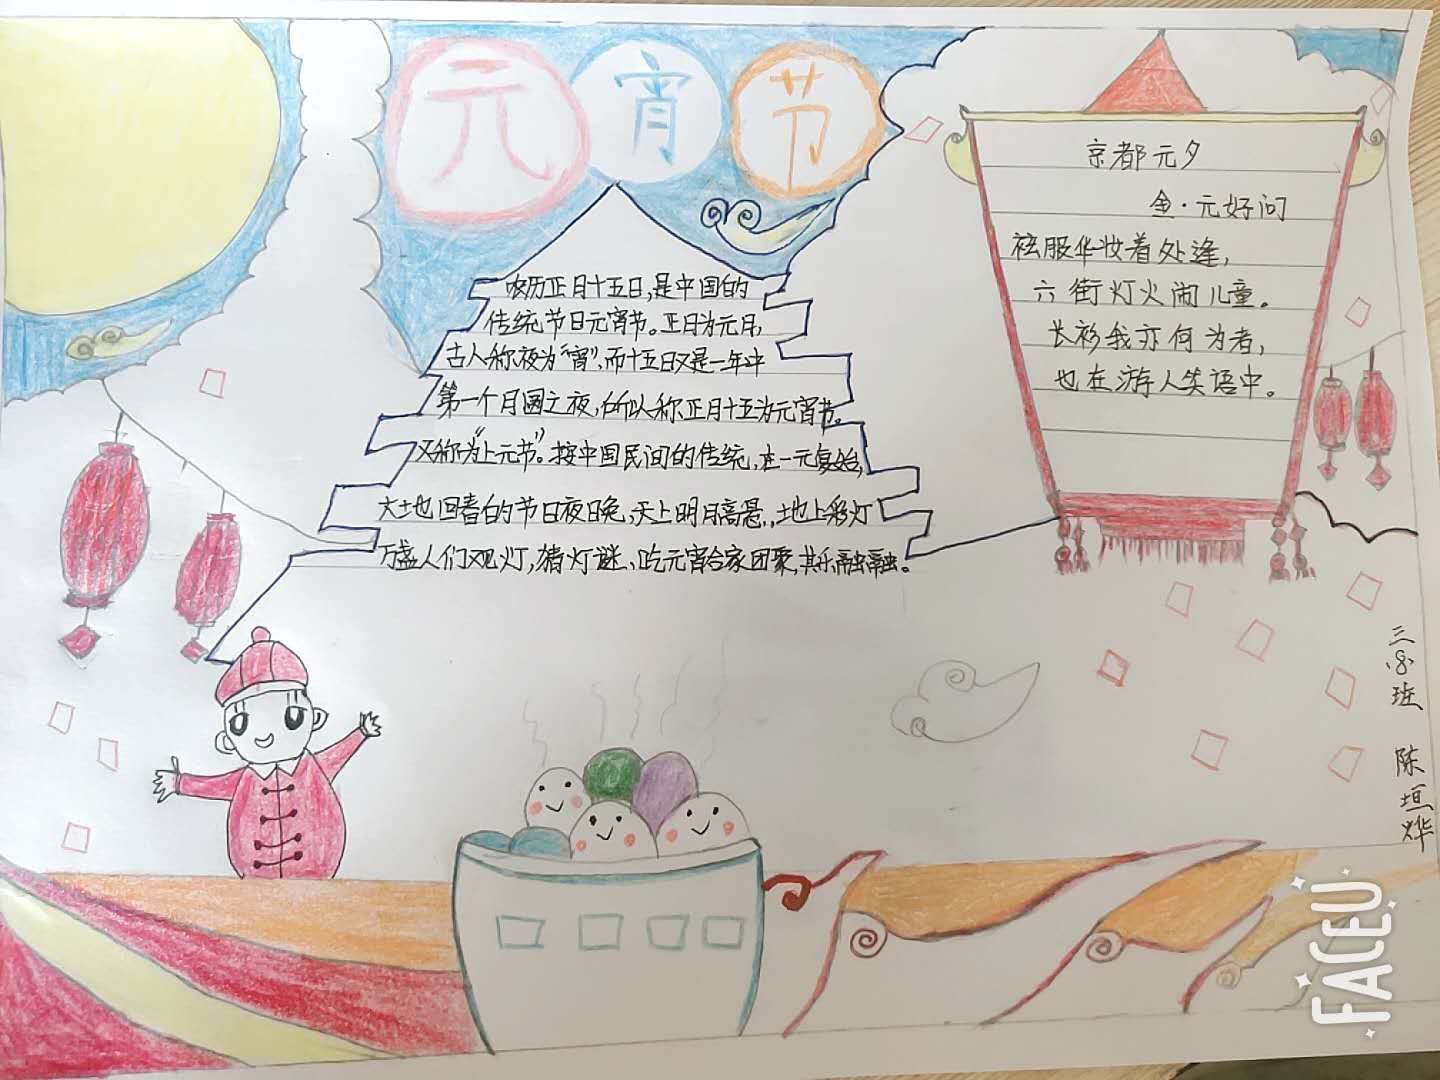 元宵节
农历正月十五日,是中国的
传统节日元宵节。正月为元月,
古人称夜为“宵”、而十五日又是一年中
第一个月圆之夜,所以称正月十五为元宵节。
又称为“上元节”。按中国民间的传统,在一元复始,
大地回春的节日夜晚,天上明月高悬,,地上彩灯
万盏人们观灯,猜灯谜、吃元宵合家团聚,其乐融融。
京都元夕
金·元好问
袨服华妆着处逢,
六街灯火闹儿童。
长衫我亦何为者,
也在游人笑语中。
三.8.班 陈垣烨
FACEU